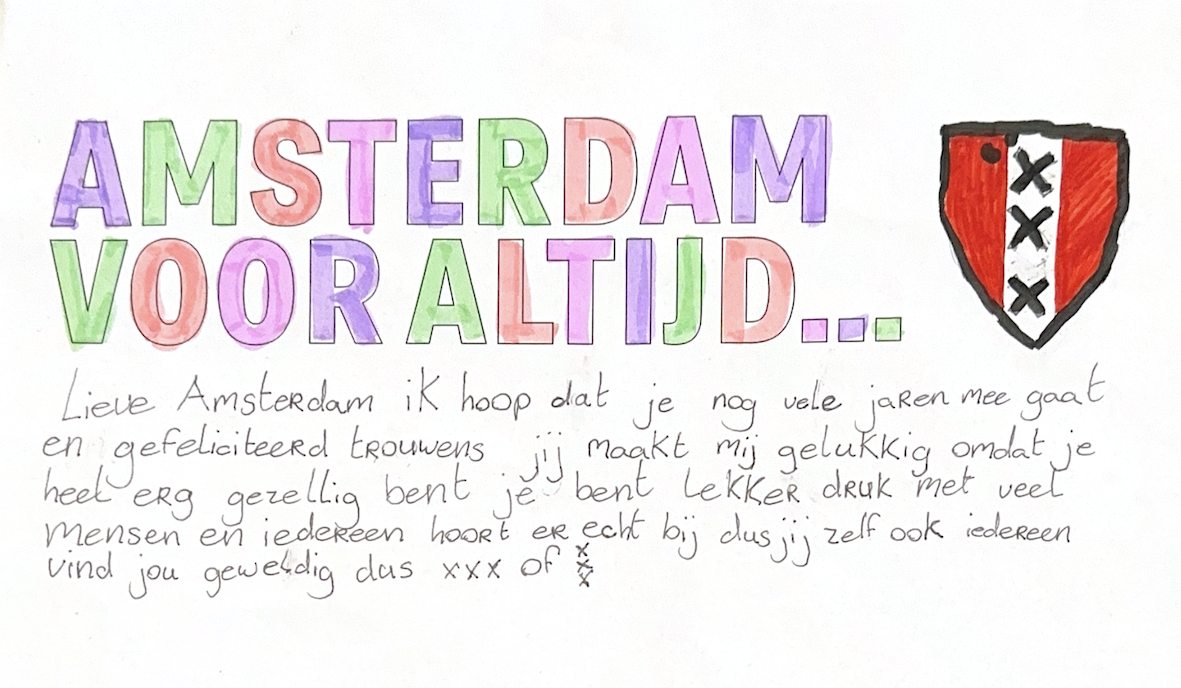 AMSTERDAM
VOOR ALTIJD...
XXX
Lieve Amsterdam ik hoop dat je nog vele jaren mee gaat
en gefeliciteerd trouwens jij maakt mij gelukkig omdat je
heel erg gezellig bent je bent lekker druk met veel
mensen en iedereen hoort er echt bij dus jij zelf ook iedereen
vind jou geweldig dus xxx of xxx